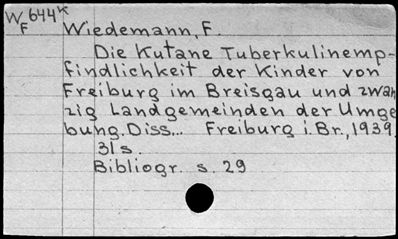 W 644ᴷ
F
Wiedemann, F.
Die Kutane Tuberkulinemp-
findlichkeit der Kinder von
Freiburg im Breisgau und zwan
zig Landgemeinden der Umge
bung. Diss... Freiburg i. Br., 1939.
31 s.
Bibliogr. s. 29